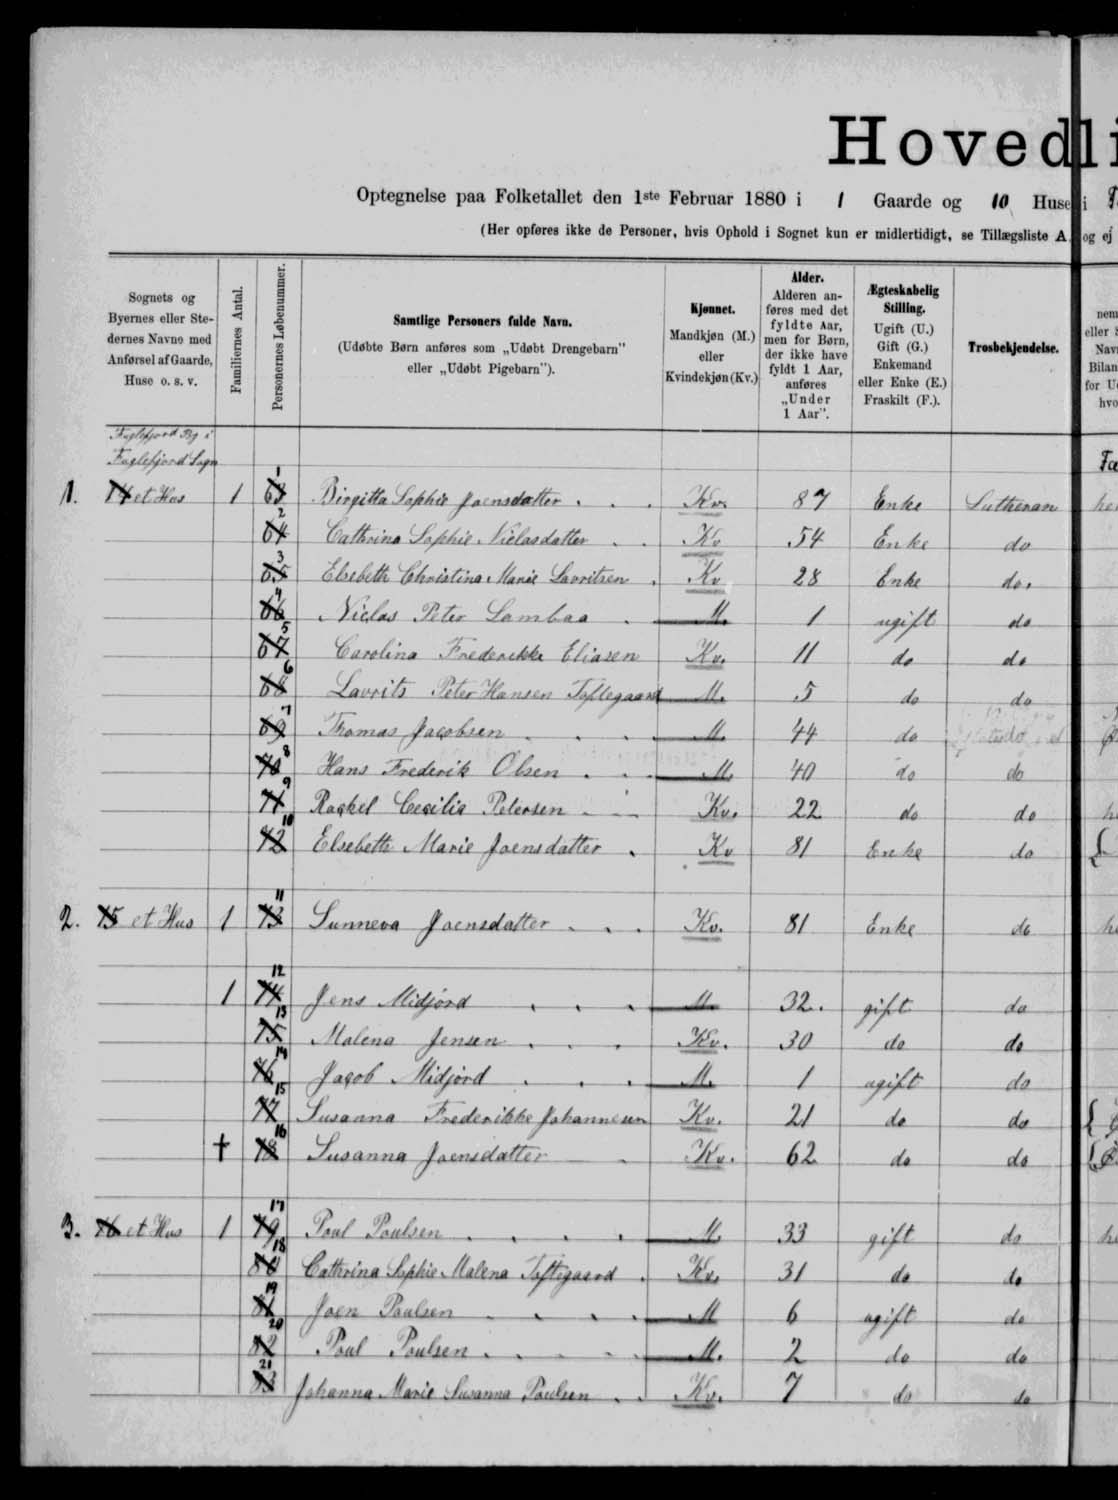 Hovedli
Optegnelse paa Folketallet den 1ste Februar 1880 i 1 Gaarde og 10 Huse i
(Her opføres ikke de Personer, hvis Ophold i Sognet kun er midlertidigt, se Tillægsliste A. og ej
Sognets og Byernes eller Stedernes Navne med Anførsel af Gaarde, Huse o. s. v.
Familiernes Antal.
Personernes Løbenummer.
Samtlige Personers fulde Navn.
(Udøbte Børn anføres som „Udøbt Drengebarn" eller „Udøbt Pigebarn").
Kjønnet.
Mandkjøn (M.) eller Kvindekjøn (Kv.)
Alder.
Alderen anføres med det fyldte Aar, men for Børn, der ikke have fyldt 1 Aar, anføres „Under 1 Aar".
Ægteskabelig Stilling.
Ugift (U.) Gift (G.) Enkemand eller Enke (E.) Fraskilt (F.).
Trosbekjendelse.
Fuglefjord Byg i
Fuglefjord Sogn
1. 14 et Hus 1 63 1 Birgitta Sophie Joensdatter Kv. 87 Enke Lutheran
64 2 Cathrina Sophie Niclasdatter Kv 54 Enke do
65 3 Elsebeth Christina Marie Lavritsen Kv 28 Enke do.
66 4 Niclas Peter Lambaa M. 1 ugift do
67 5 Carolina Frederikke Eliasen Kv. 11 do do
68 6 Lavrits Peter Hansen Toftegaard M. 5 do do
69 7 Thomas Jacobsen M. 44 do do
70 8 Hans Frederik Olsen M. 40 do do
71 9 Rackel Cecilia Petersen Kv. 22 do do
72 10 Elsebeth Marie Joensdatter Kv 81 Enke do
2. 15 et Hus 1 73 11 Sunneva Joensdatter Kv. 81 Enke do
1 74 12 Jens Midjord M. 32. gift do
75 13 Malena Jensen Kv. 30 do do
76 14 Jacob Midjord M. 1 ugift do
77 15 Susanna Frederikke Johannesen Kv. 21 do do
† 78 16 Susanna Joensdatter Kv. 62 do do
3. 16 et Hus 1 79 17 Poul Poulsen M. 33 gift do
80 18 Cathrina Sophie Malena Toftegaard Kv. 31 do do
81 19 Joen Poulsen M 6 ugift do
82 20 Poul Poulsen M. 2 do do
83 21 Johanna Marie Susanna Poulsen Kv. 7 do do